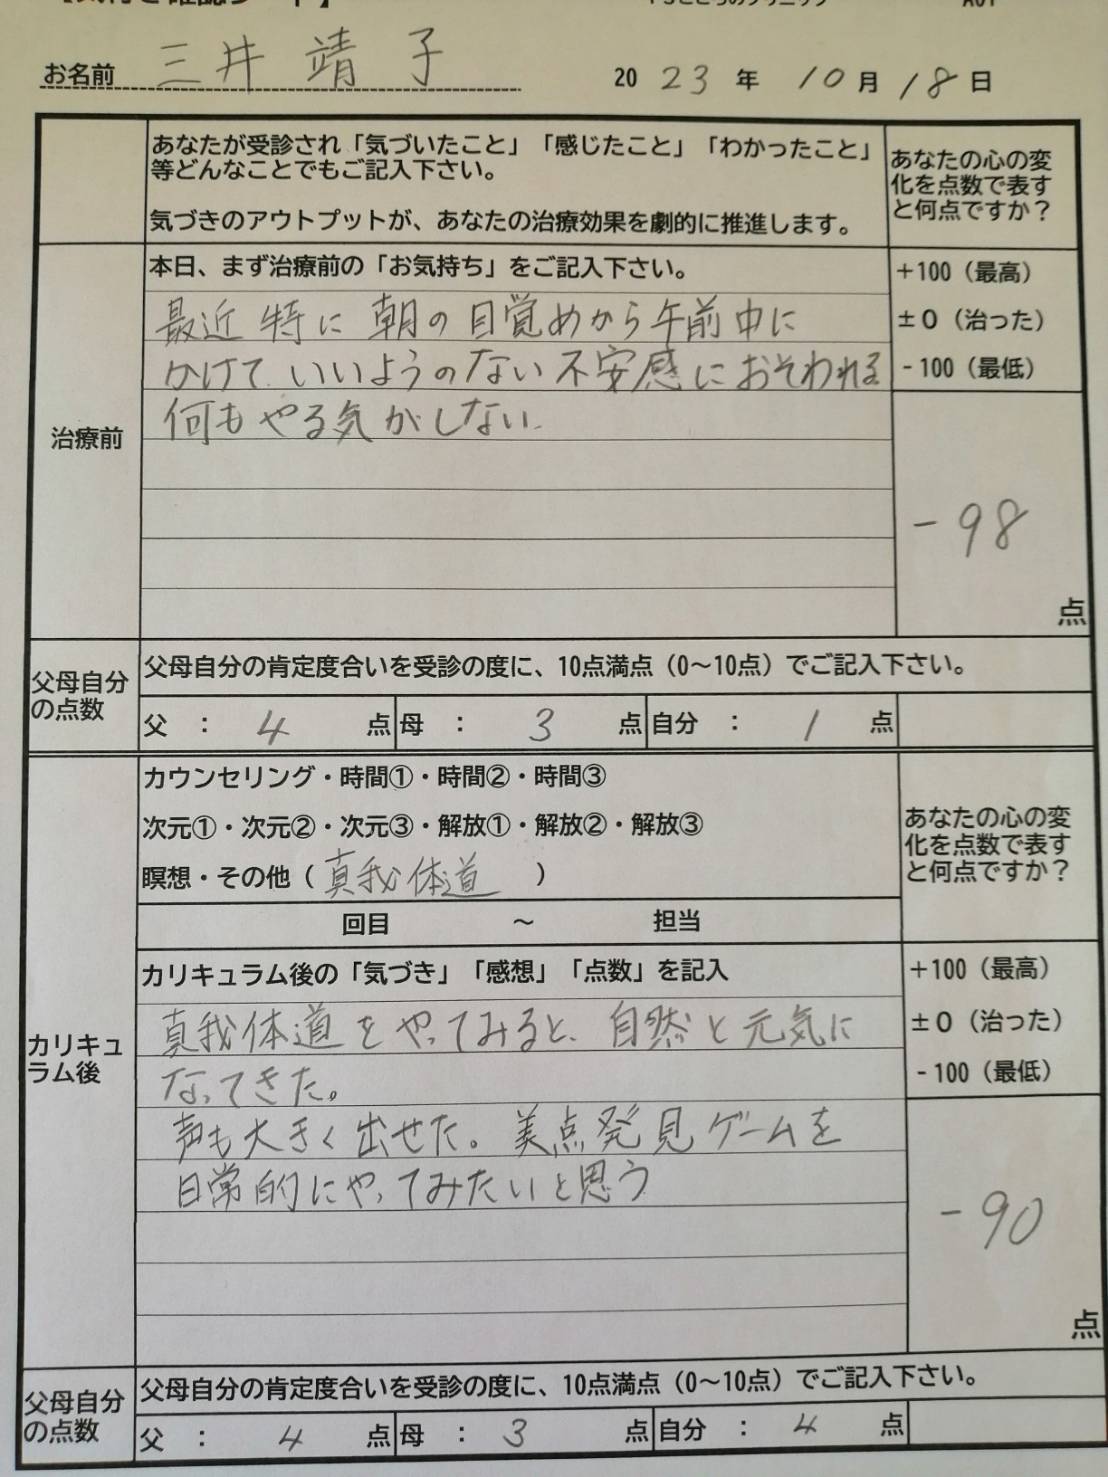 お名前 三井 靖子 2023年 10月 18日
あなたが受診され「気づいたこと」「感じたこと」「わかったこと」
等どんなことでもご記入下さい。
気づきのアウトプットが、あなたの治療効果を劇的に推進します。
あなたの心の変
化を点数で表す
と何点ですか？
治療前
本日、まず治療前の「お気持ち」をご記入下さい。
最近 特に 朝の目覚めから午前中に
かけて、いいようのない不安感におそわれる
何もやる気がしない.
+100（最高）
±0（治った）
-100（最低）
-98
点
父母自分
の点数
父母自分の肯定度合いを受診の度に、10点満点（0～10点）でご記入下さい。
父 ： 4 点 母 ： 3 点 自分 ： 1 点
カリキュ
ラム後
カウンセリング・時間①・時間②・時間③
次元①・次元②・次元③・解放①・解放②・解放③
瞑想・その他（真我体道 ）
回目 ～ 担当
あなたの心の変
化を点数で表す
と何点ですか？
カリキュラム後の「気づき」「感想」「点数」を記入
真我体道をやってみると、自然と元気に
なってきた。
声も大きく出せた。美点発見ゲームを
日常的にやってみたいと思う
+100（最高）
±0（治った）
-100（最低）
-90
点
父母自分
の点数
父母自分の肯定度合いを受診の度に、10点満点（0～10点）でご記入下さい。
父 ： 4 点 母 ： 3 点 自分 ： 4 点